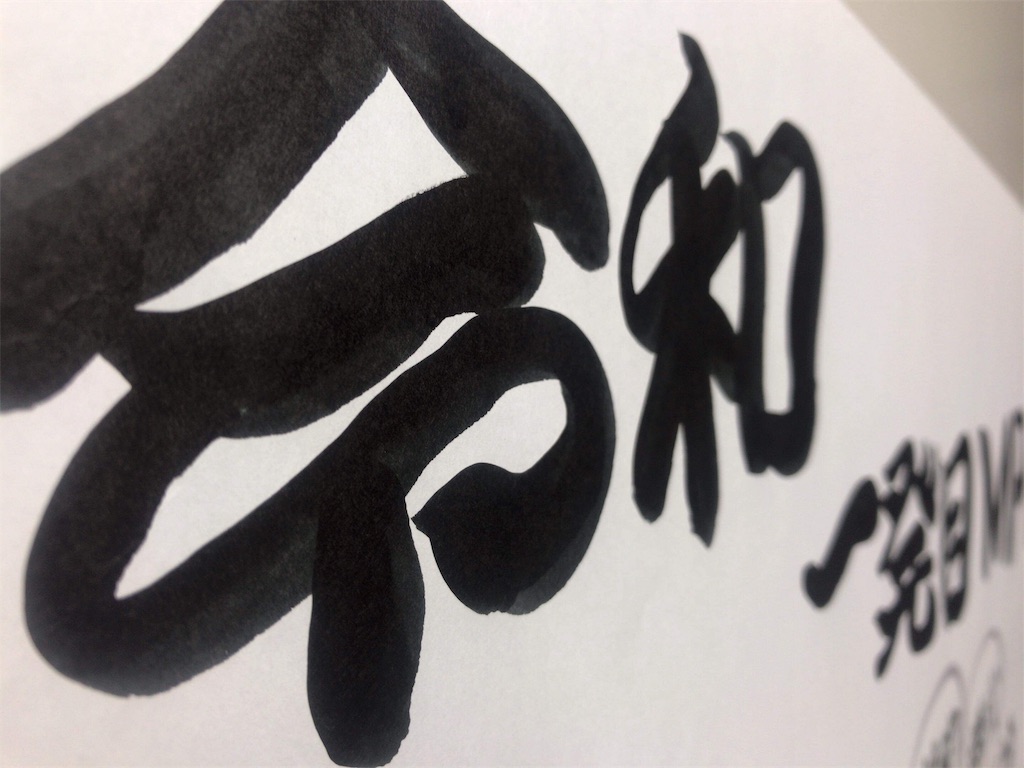 令和
一発目